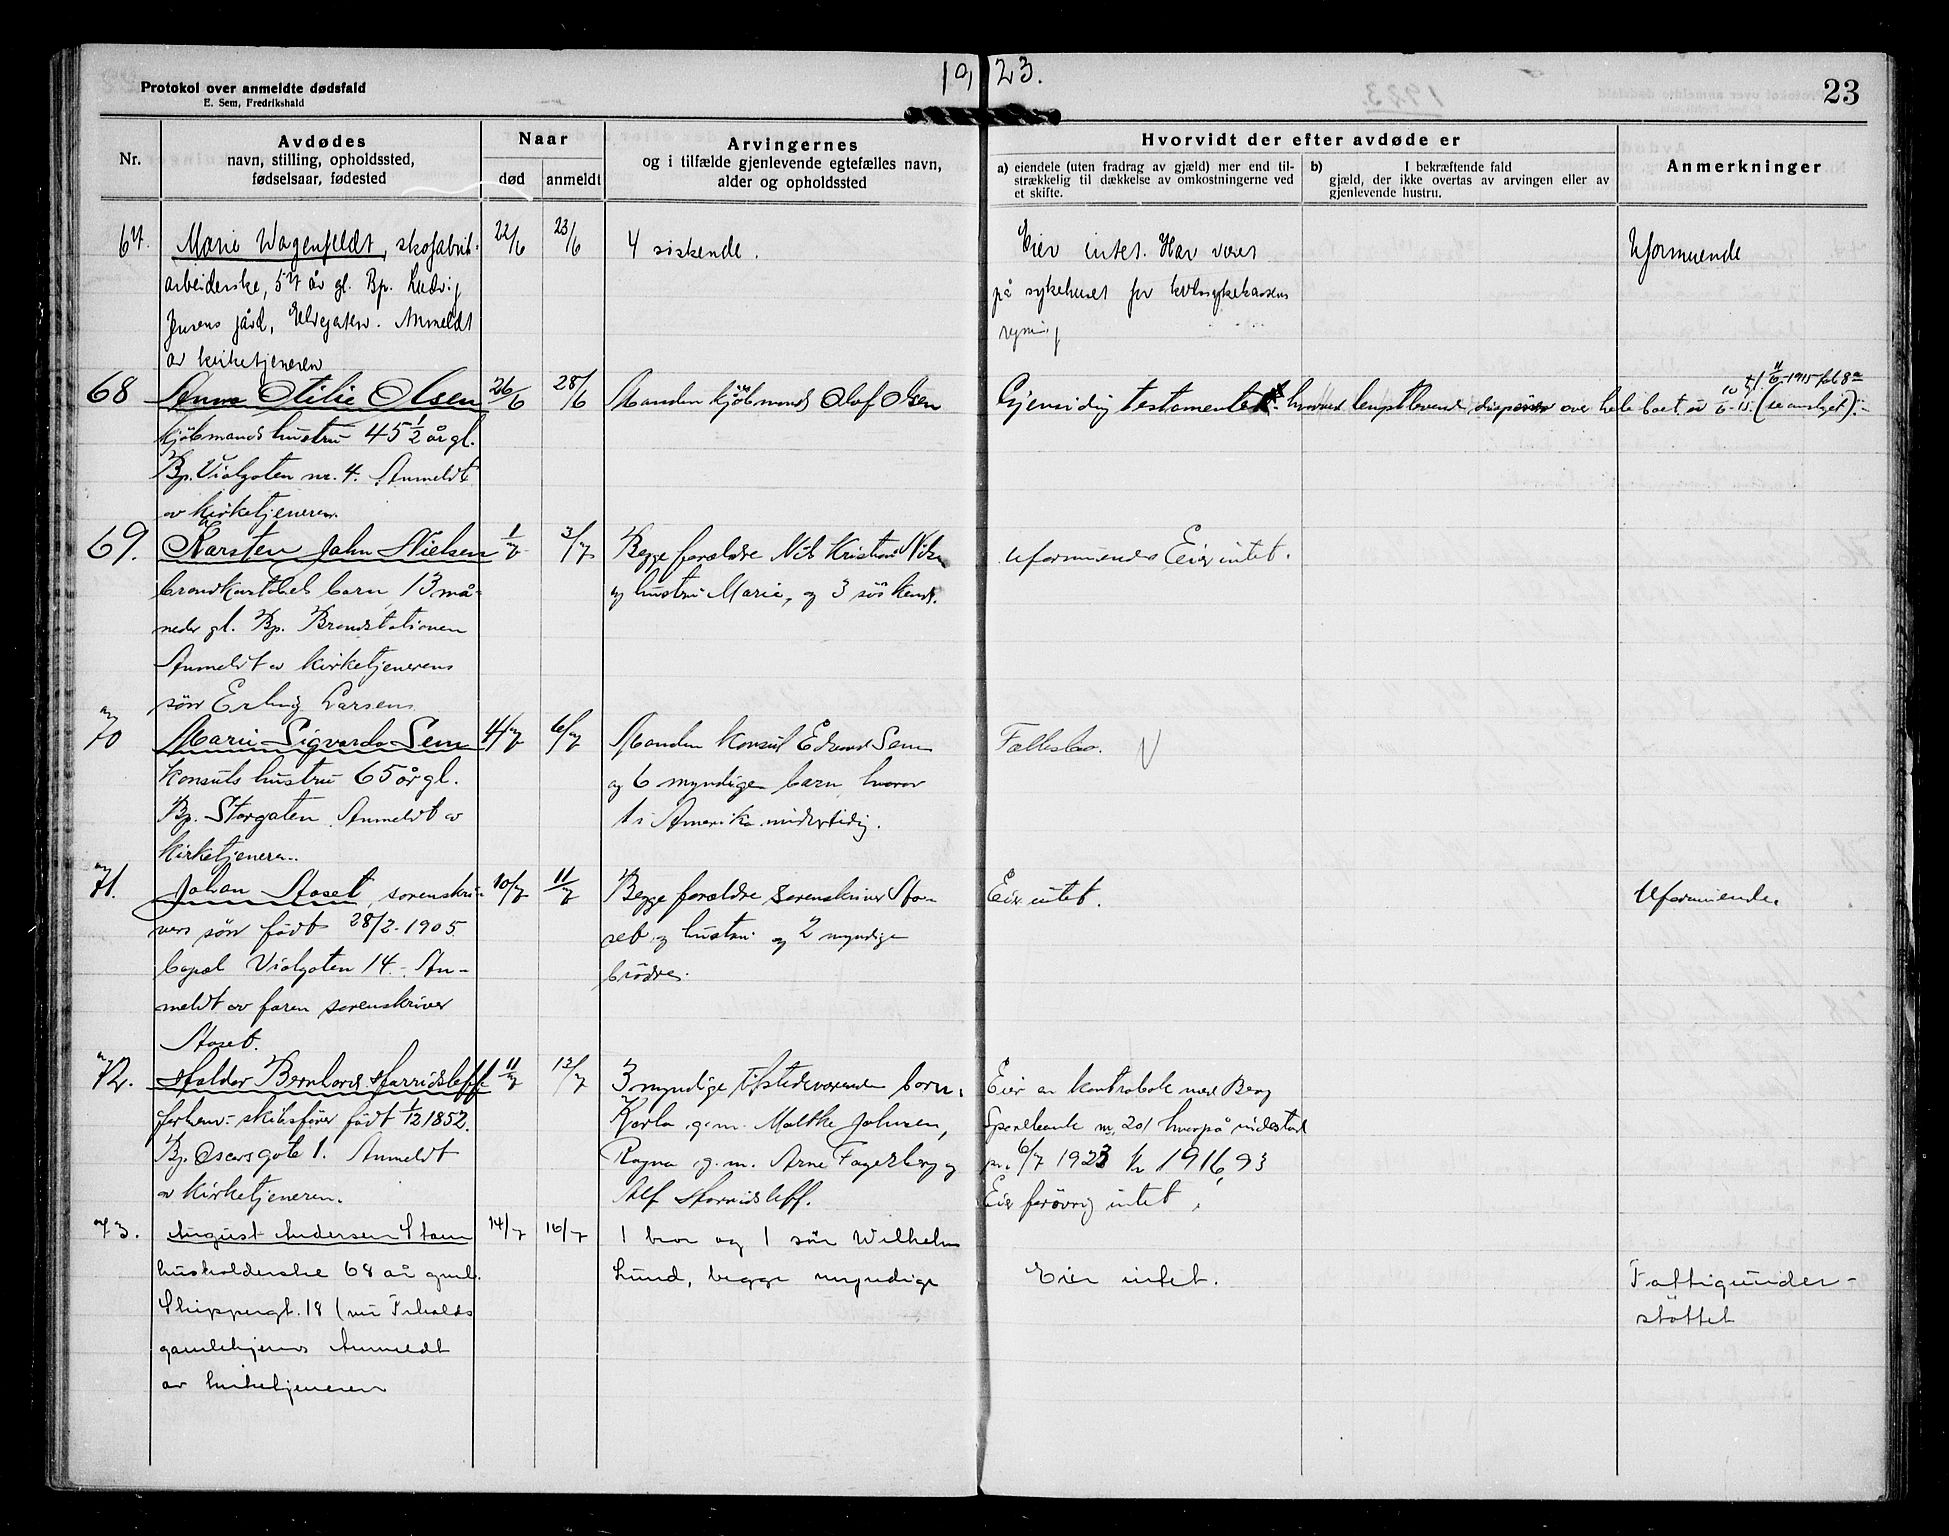 1923.
Protokol over anmeldte dødsfald
E. Sem, Fredrikshald
23
Nr.
Avdødes
navn, stilling, opholdssted,
fødselsaar, fødested
Naar
død
anmeldt
Arvingernes
og i tilfælde gjenlevende egtefælles navn,
alder og opholdssted
Hvorvidt der efter avdøde er
a) eiendele (uten fradrag av gjæld) mer end til-
strækkelig til dækkelse av omkostningerne ved
et skifte.
b) I bekræftende fald
gjæld, der ikke overtas av arvingen eller av
gjenlevende hustru.
Anmerkninger
67.
Marie Wagenfeldt, skofabrik-
arbeiderske, 57 år gl. Bp. Ludvig
Jensens gård, Elvegaten. Anmeldt
av kirketjeneren
22/6
23/6
4 søskende.
Eier intet. Har været
på sykehuset for
regning
Uformuende
68
Anna Otilie Olsen
kjøbmands hustru 45 1/2 år gl.
Bp. Violgaten nr. 4. Anmeldt
av kirketjeneren
26/6
28/6
Manden kjøbmand Olaf Olsen
Gjensidig testamente over hele boet (se omslaget).
69.
Karsten John Nielsen
barn 13 må-
neder gl. Bp. Brandstationen
Anmeldt av kirketjenerens
søn Erling Larsen
1/7
3/7
Begge forældre Nils Kristian
og hustru Marie, og 3 søskend.
uformuende Eier intet.
70
Marie Sigvarda Sem
Konsuls hustru 65 år gl.
Bp. Storgaten Anmeldt av
kirketjeneren
4/7
6/7
Manden Konsul Edvard Sem
og 6 myndige barn, hvorav
1 i Amerika midlertidig.
Fællesbo.
71.
Johan Staset, sorenskri-
vers søn født 28/2-1905
bopæl Violgaten 14. An-
meldt av faren sorenskriver
Staset.
10/7
11/7
Begge forældre sorenskriver Sta-
set og hustru og 2 myndige
brødre.
Eier intet.
Uformuende.
72.
Haldor Bernhard Harridsleff
forhenv. skibsfører født 1/12 1852.
Bp. Oscarsgate 1. Anmeldt
av kirketjeneren.
11/7
12/7
3 myndige tilstedeværende barn:
Karla g.m. Moltke Johnsen,
Ragna g.m. Arne Fagerberg og
Alf Harridsleff.
Eier en kontrabok med Berg
Sparebank nr. 201 hvorpå indestod
pr. 6/7 1923 kr 1916,93
Eier forøvrig intet.
73.
August Andersen Stam
husholderske 68 år gml.
Skippergt. 18 (nu
gamlehjem. Anmeldt
av kirketjeneren
14/7
16/7
1 bror og 1 søn Wilhelm
Lund, begge myndige
Eier intet.
Fattigunder-
støttet